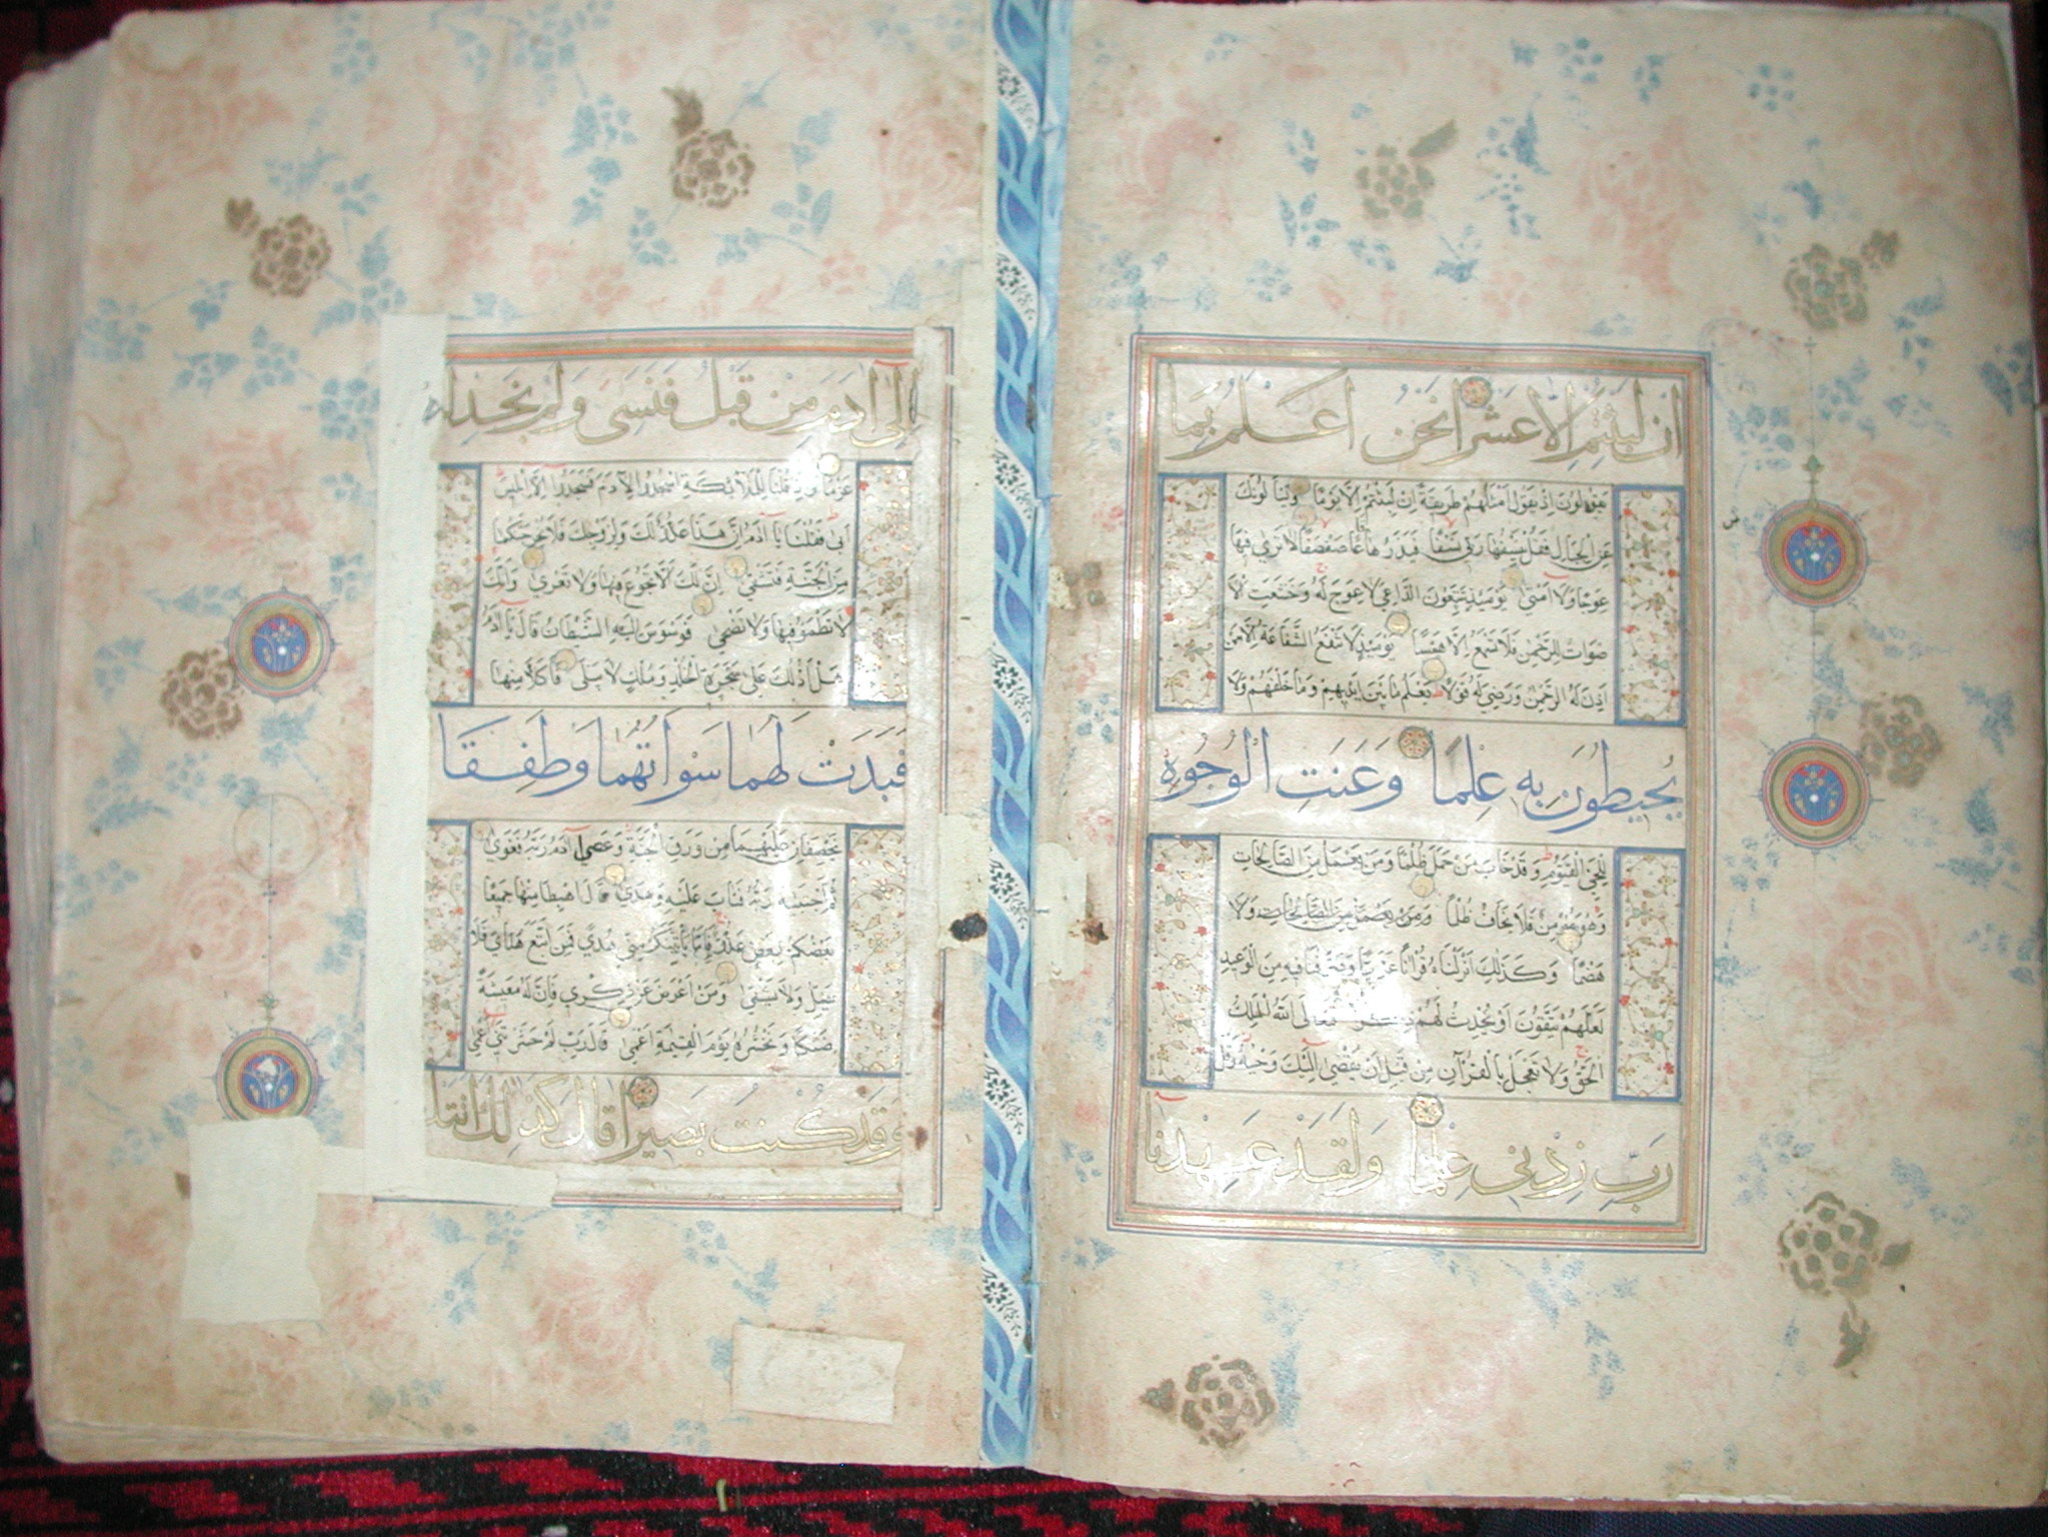 ان لبثتم الا عشرا نحن اعلم بما
يقولون اذ يقول امثلهم طريقة ان لبثتم الا يوما ويسألونك
عن الجبال فقل ينسفها ربي نسفا فيذرها قاعا صفصفا لا ترى فيها
عوجا ولا امتا يومئذ يتبعون الداعي لا عوج له وخشعت الا
صوات للرحمن فلا تسمع الا همسا يومئذ لا تنفع الشفاعة الا من
اذن له الرحمن ورضي له قولا يعلم ما بين ايديهم وما خلفهم ولا
يحيطون به علما وعنت الوجوه
للحي القيوم وقد خاب من حمل ظلما ومن يعمل من الصالحات
وهو مؤمن فلا يخاف ظلما ومن يعمل من الصالحات ولا
هضما وكذلك انزلناه قرآنا عربيا وصرفنا فيه من الوعيد
لعلهم يتقون او يحدث لهم فتعالى الله الملك
الحق ولا تعجل بالقرآن من قبل ان يقضى اليك وحيه وقل
رب زدني علما ولقد عهدنا
الى آدم من قبل فنسي ولم نجد له
عزما واذ قلنا للملائكة اسجدوا لآدم فسجدوا الا ابليس
ابى فقلنا يا آدم ان هذا عدو لك ولزوجك فلا يخرجنكما
من الجنة فتشقى ان لك الا تجوع فيها ولا تعرى وانك
لا تظمؤ فيها ولا تضحى فوسوس اليه الشيطان قال يا آدم
هل ادلك على شجرة الخلد وملك لا يبلى فاكلا منها
فبدت لهما سوآتهما وطفقا
يخصفان عليهما من ورق الجنة وعصى آدم ربه فغوى
ثم اجتبيه ربه فتاب عليه وهدى قال اهبطا منها جميعا
بعضكم لبعض عدو فاما يأتينكم مني هدى فمن اتبع هداي فلا
يضل ولا يشقى ومن اعرض عن ذكري فان له معيشة
ضنكا ونحشره يوم القيمة اعمى قال رب لم حشرتني اعمى
وقد كنت بصيرا قال كذلك اتتك